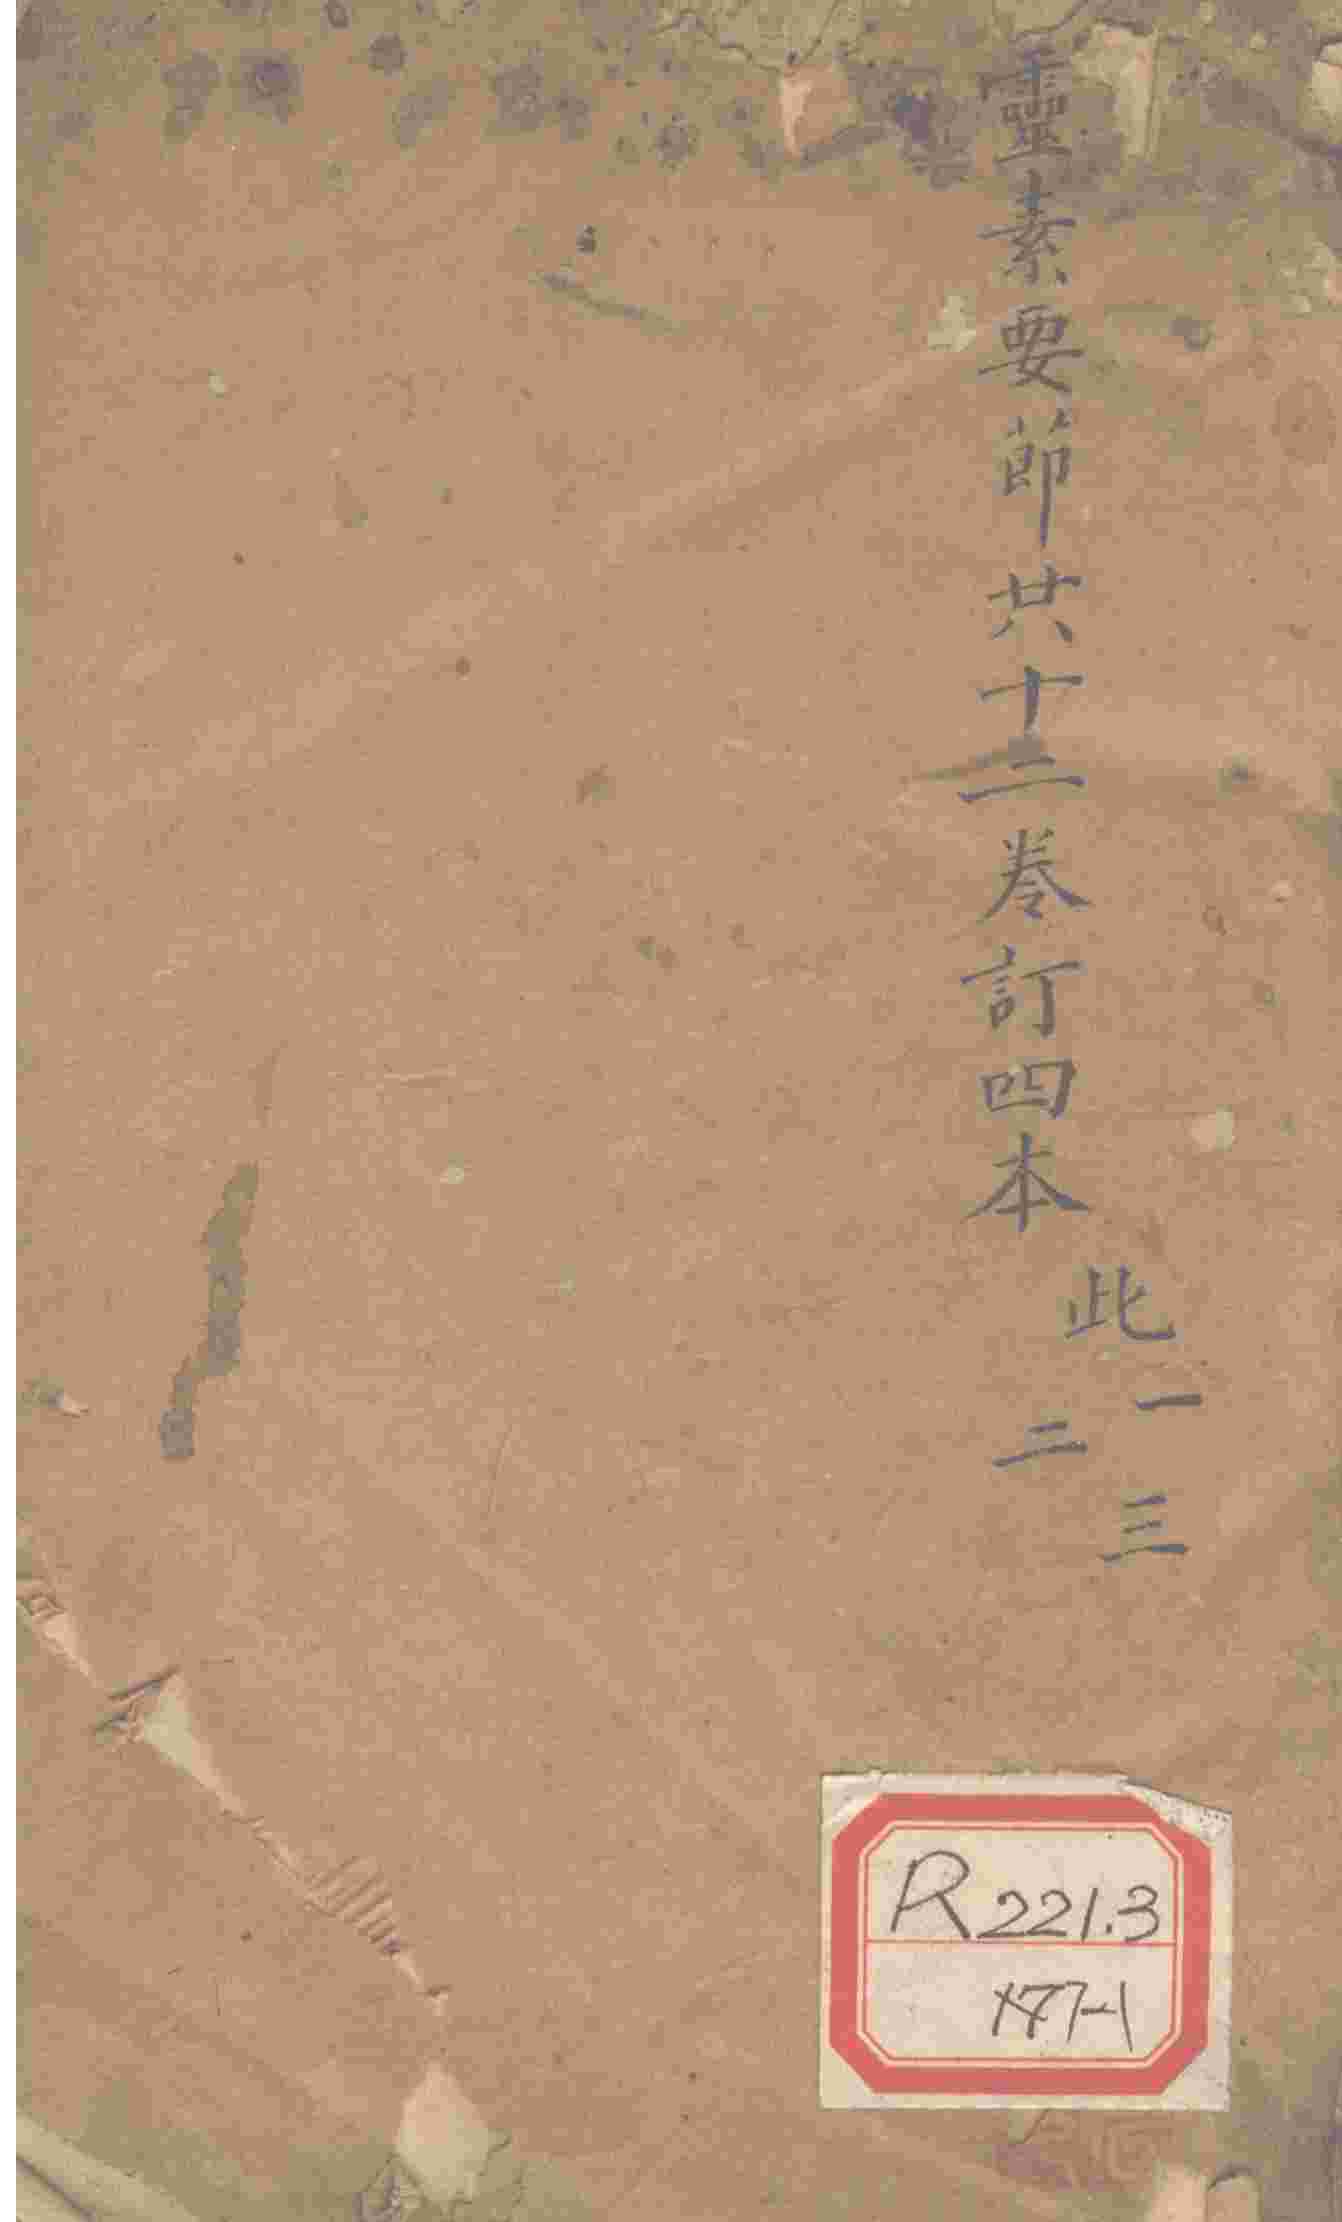 靈素要節共十二卷訂四本
此一二三
R221.3
177-1